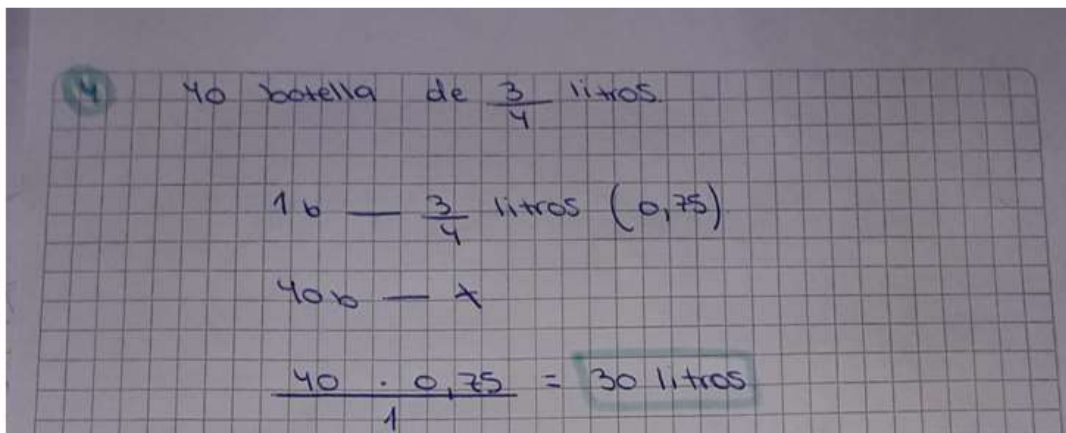 4 40 botella de 3/4 litros.
1b — 3/4 litros (0,75)
40b — x
40 · 0,75 / 1 = 30 litros